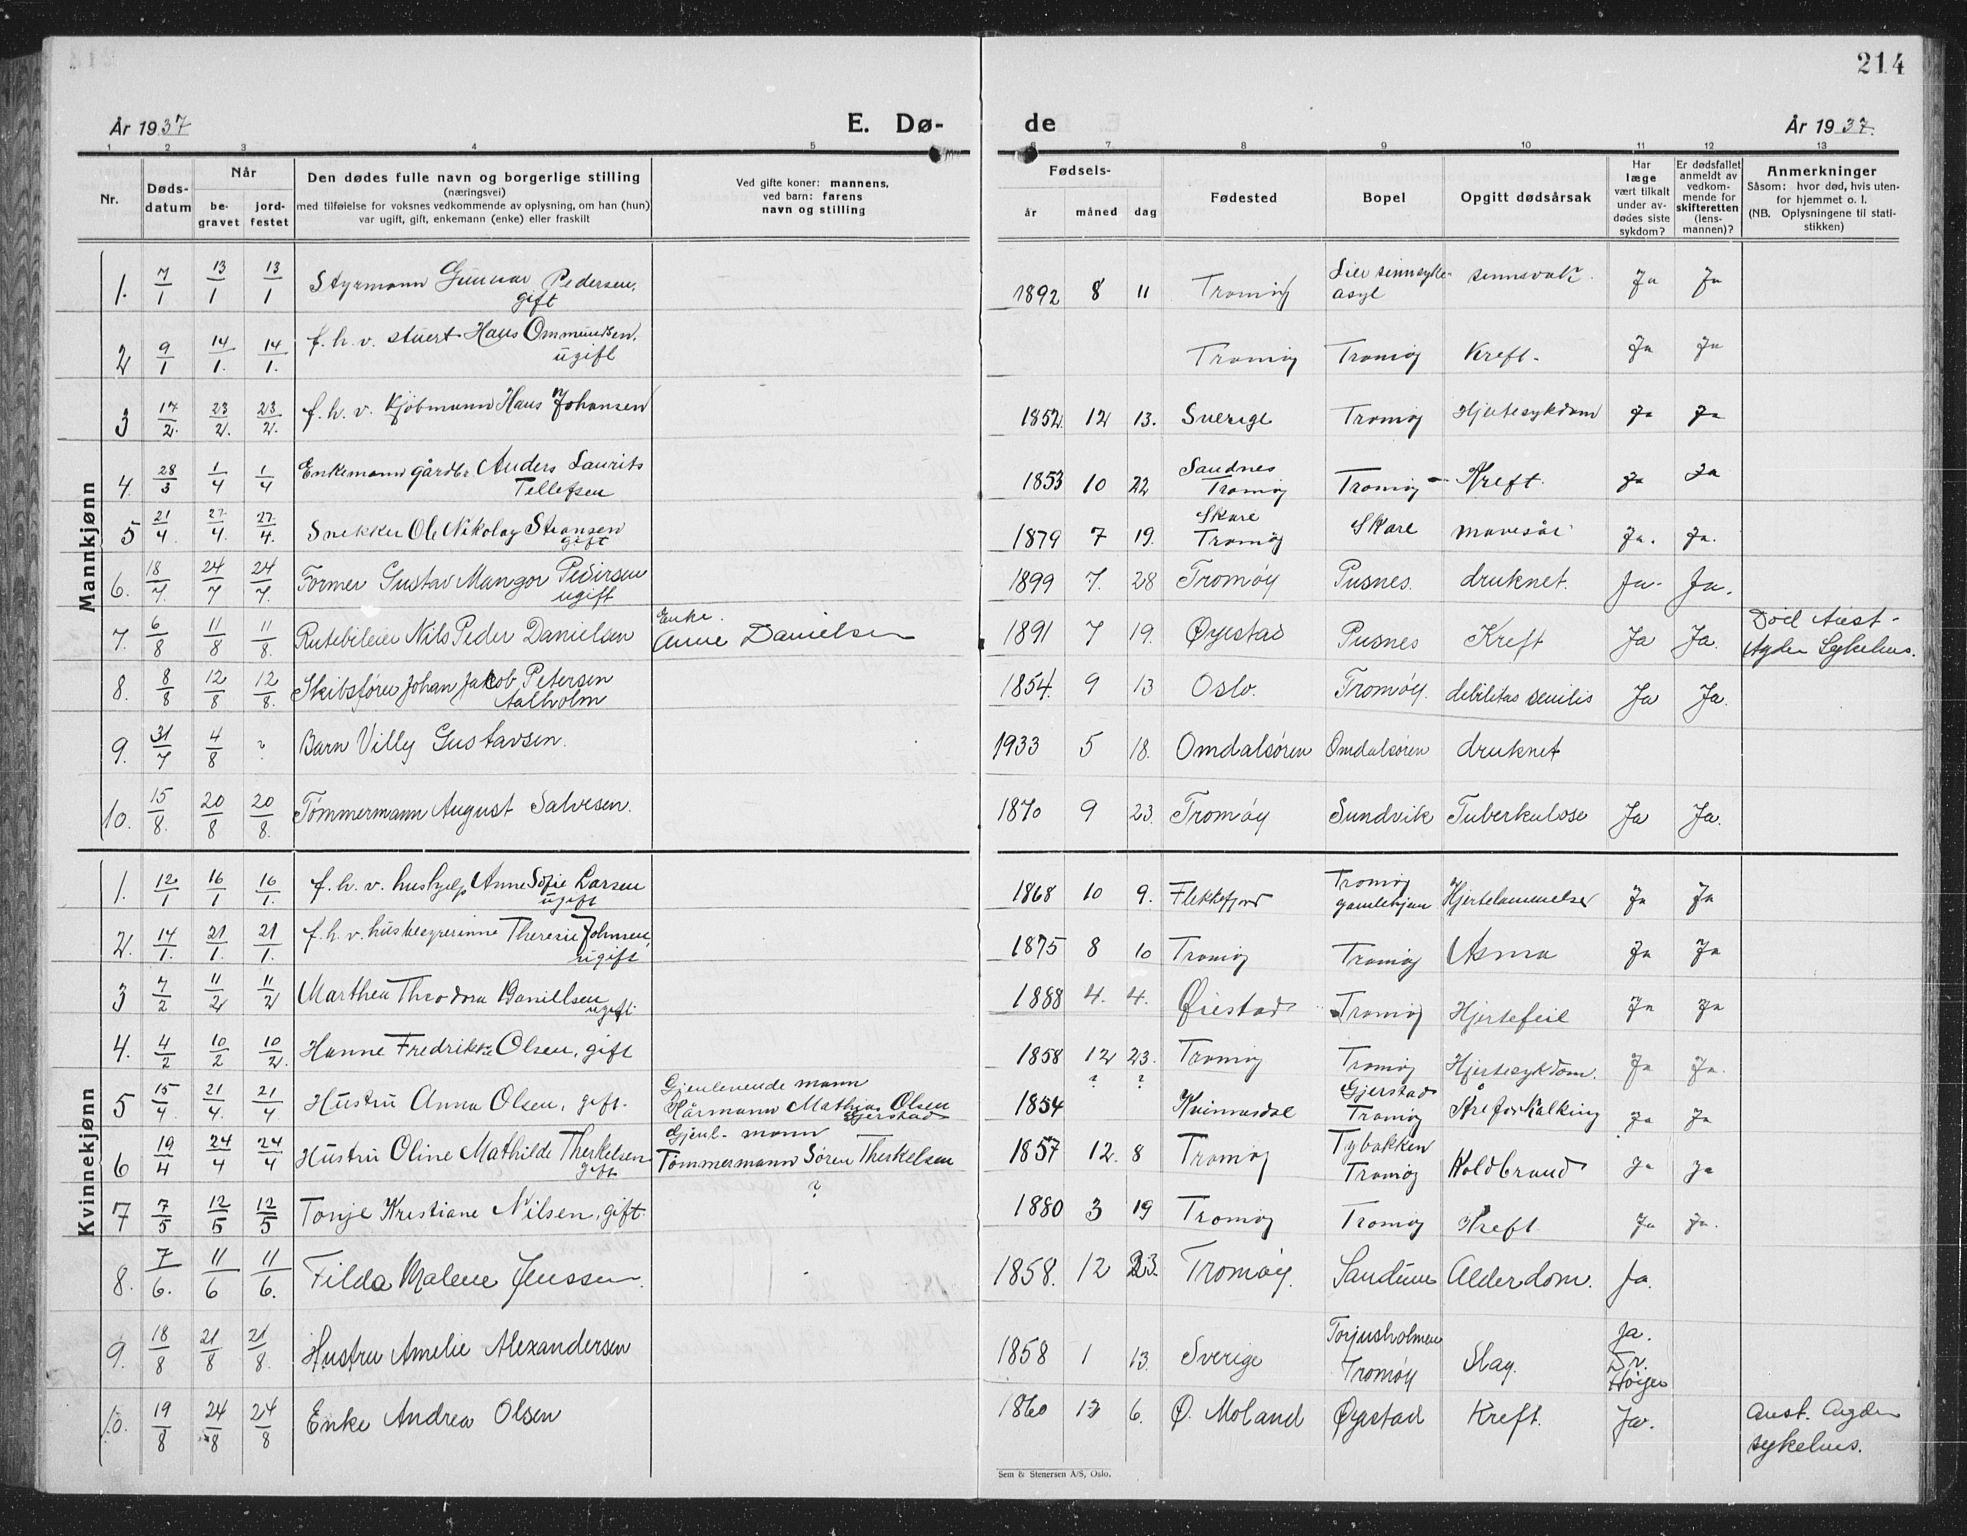 214
År 1937
E. Dø-
de
År 1937.
1 2 3 4 5 6 7 8 9 10 11 12 13
Nr.
Døds-
datum
Når
be-
gravet
jord-
festet
Den dødes fulle navn og borgerlige stilling
(næringsvei)
med tilføielse for voksnes vedkommende av oplysning, om han (hun)
var ugift, gift, enkemann (enke) eller fraskilt
Ved gifte koner: mannens,
ved barn: farens
navn og stilling
Fødsels-
år måned dag
Fødested
Bopel
Opgitt dødsårsak
Har
læge
vært tilkalt
under av-
dødes siste
sykdom?
Er dødsfallet
anmeldt av
vedkom-
mende for
skifteretten
(lens-
mannen)?
Anmerkninger
Såsom: hvor død, hvis uten-
for hjemmet o. l.
(NB. Oplysningene til stati-
stikken)
Mannkjønn
1. 7/1 13/1 13/1 Styrmann Gunnar Pedersen, gift 1892 8 11 Tromøy Lier sinnsyke-asyl sinnsvak Ja Ja
2 9/1 14/1. 14/1. f. h. v. stuert Hans Ommundsen, ugift Tromøy Tromøy Kreft. Ja Ja
3 17/2. 23/2. 23/2. f. h. v. Kjøbmann Hans Johansen 1852 12 13. Sverige Tromøy Hjertesykdom Ja Ja
4. 28/3 1/4 1/4 Enkemann gårdbr. Anders Laurits Tellefsen 1853 10 22 Sandnes Tromøy Tromøy Kreft. Ja Ja
5 21/4. 27./4. 27./4. Snekker Ole Nikolay Stiansen gift 1879 7 19. Skare Tromøy Skare mavesår Ja. Ja.
6. 18/7. 24/7 24/7. Former Gustav Mangor Pedersen ugift 1899 7. 28 Tromøy Pusnes. druknet. Ja. Ja.
7. 6/8 11/8 11/8. Rutebileier Nils Peder Danielsen Enke. Anne Danielsen 1891 7 19. Øyestad Pusnes Kreft Ja Ja. Död Aust-Agder Sykehus.
8. 8/8 12/8 12/8. Skibsförer Johan Jakob Petersen Aalholm 1854. 9 13 Oslo. Tromøy. debilitas senilis Ja Ja.
9. 31/7 4/8 ? Barn Villy Gustavsen. 1933 5 18. Omdalsören Omdalsören druknet
10. 15/8. 20/8 20/8. Tømmermann August Salvesen. 1870 9 23. Tromøy Sundvik Tuberkulose Ja Ja.
Kvinnekjønn
1. 12/1 16/1 16/1. f. h. v. hushjelp Anne Sofie Larsen ugift 1868 10 9. Flekkefjord Tromøy gamlehjem Hjertelammelse Ja Ja
2. 14/1. 21/1. 21/1. f. h. v. husbestyrerinne Therese Johnsen, ugift 1875 8 10 Tromøy Tromøy Asma Ja Ja
3 7/2 11/2 11/2 Marthea Theodora Daniellsen ugift. 1888 4. 4. Øiestad Tromøy Hjertefeil Ja Ja
4. 4/2 10/2 10/2. Hanne Fredrikke Olsen, gift 1858 12 ? 23. ? Tromøy Tromøy Hjertesykdom. Ja Ja.
5 15/4. 21/4. 21/4 Hustru Anna Olsen, gift. Gjenlevende mann Hårmann Mathias Olsen Gjerstad 1854 Kvinnesdal Gjerstad Tromøy Åreforkalking Ja Ja
6 19/4 24/4 24/4 Hustru Oline Mathilde Therkelsen gift Gjenl. mann Tømmermann Søren Therkelsen ? 1857 12. 8 Tromøy Tybakken Tromøy Koldbrand Ja Ja
7 7/5 12/5 12/5 Tonje Kristiane Nilsen, gift. 1880 3 19 Tromøy Tromøy Kreft Ja Ja.
8. 7/6. 11/6 11/6. Filda Malene Jenssen. 1858. 12 23. Tromøy. Sandum Alderdom. Ja.
9. 18/8 21/8 21/8. Hustru Amelie Alexandersen 1858 1 13. Sverige Torjusholmen Tromøy Slag. Ja. Dr. Høyer
10. 19/8 24/8 24/8 Enke Andrea Olsen 1860 12 6. Ø. Moland Øyestad Kreft. Ja. Aust. Agder sykehus.
Sem & Stenersen A/S, Oslo.